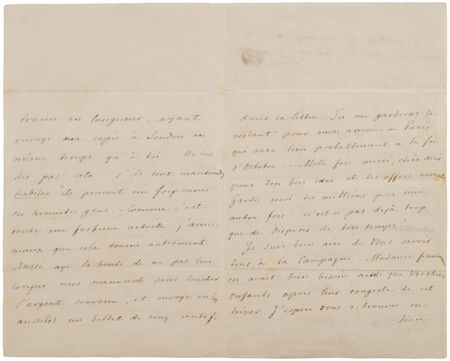 traine en longueur, ayant
envoyé ma copie à Londres en
même temps qu'à toi
des pas cela – s'ils sont marchands
habiles ils peuvent me friponner
en honnêtes gens. – Comme c'est
toute ma fortune actuelle j'aime
mieux que cela tourne autrement.
aye la bonté de ne pas leur
confier mes manuscrits sans toucher
l'argent convenu, et envoye
aussitôt un billet de cinq cents f.
dans ta lettre. Tu me garderas le
restant pour mon arrivée à Paris
qui aura lieu probablement à la fin
d'Octobre. – Mille fois merci, cher
pour ton bon cœur et tes offres
Gardes moi tes millions pour une
autre fois – n'est-ce pas déjà trop
que de disposer de ton temps
Je suis bien aise de vous savoir
tous à la campagne. Madame
en avait bien besoin ainsi que vos chers
enfants après leur rougeole de cet
hiver. J'espère vous retrouver en